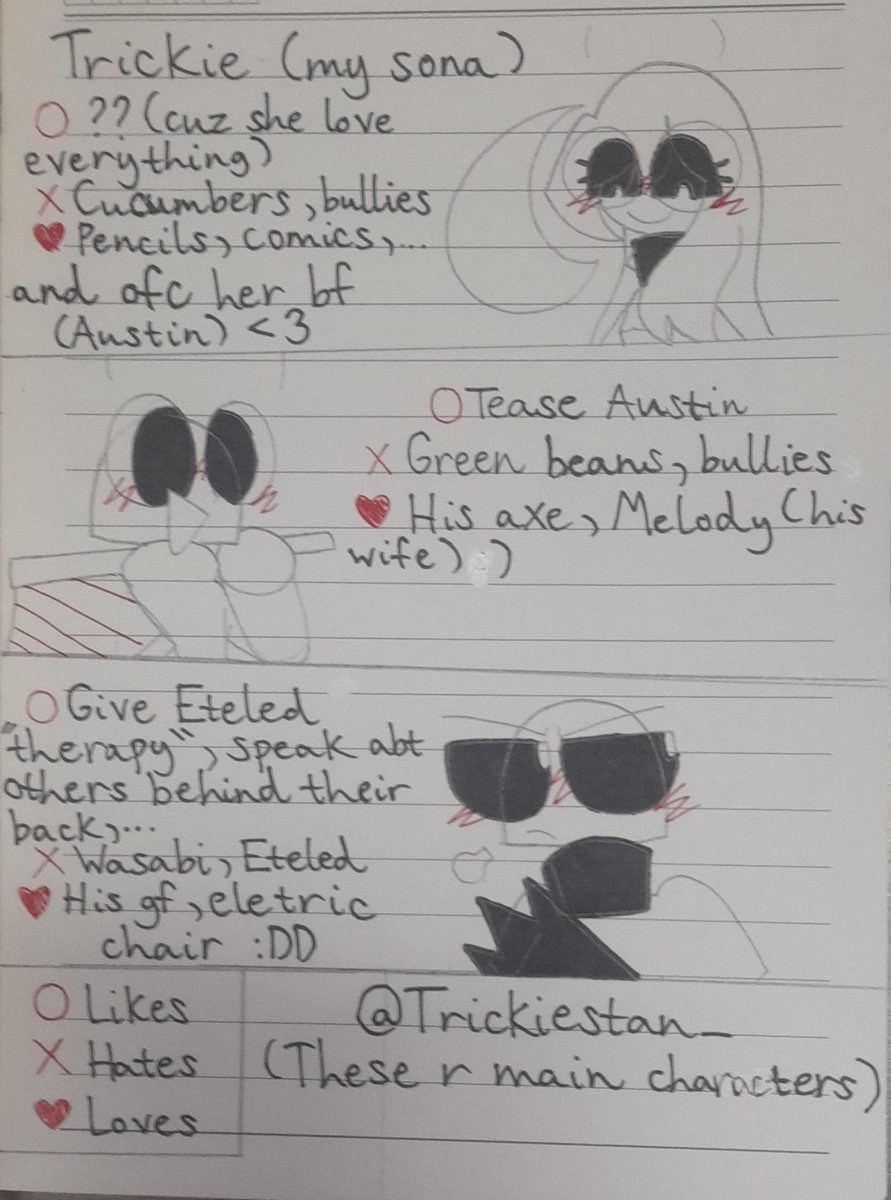 Trickie (my sona)
O ?? (cuz she love
everything)
X Cucumbers, bullies
♥ Pencils, comics,...
and ofc her bf
(Austin) <3
O Tease Austin
X Green beans, bullies
♥ His axe, Melody (his
wife) )
O Give Eteled
"therapy", speak abt
others behind their
back,...
X Wasabi, Eteled
♥ His gf, eletric
chair :DD
O Likes
X Hates
♥ Loves
@Trickiestan_
(These r main characters)